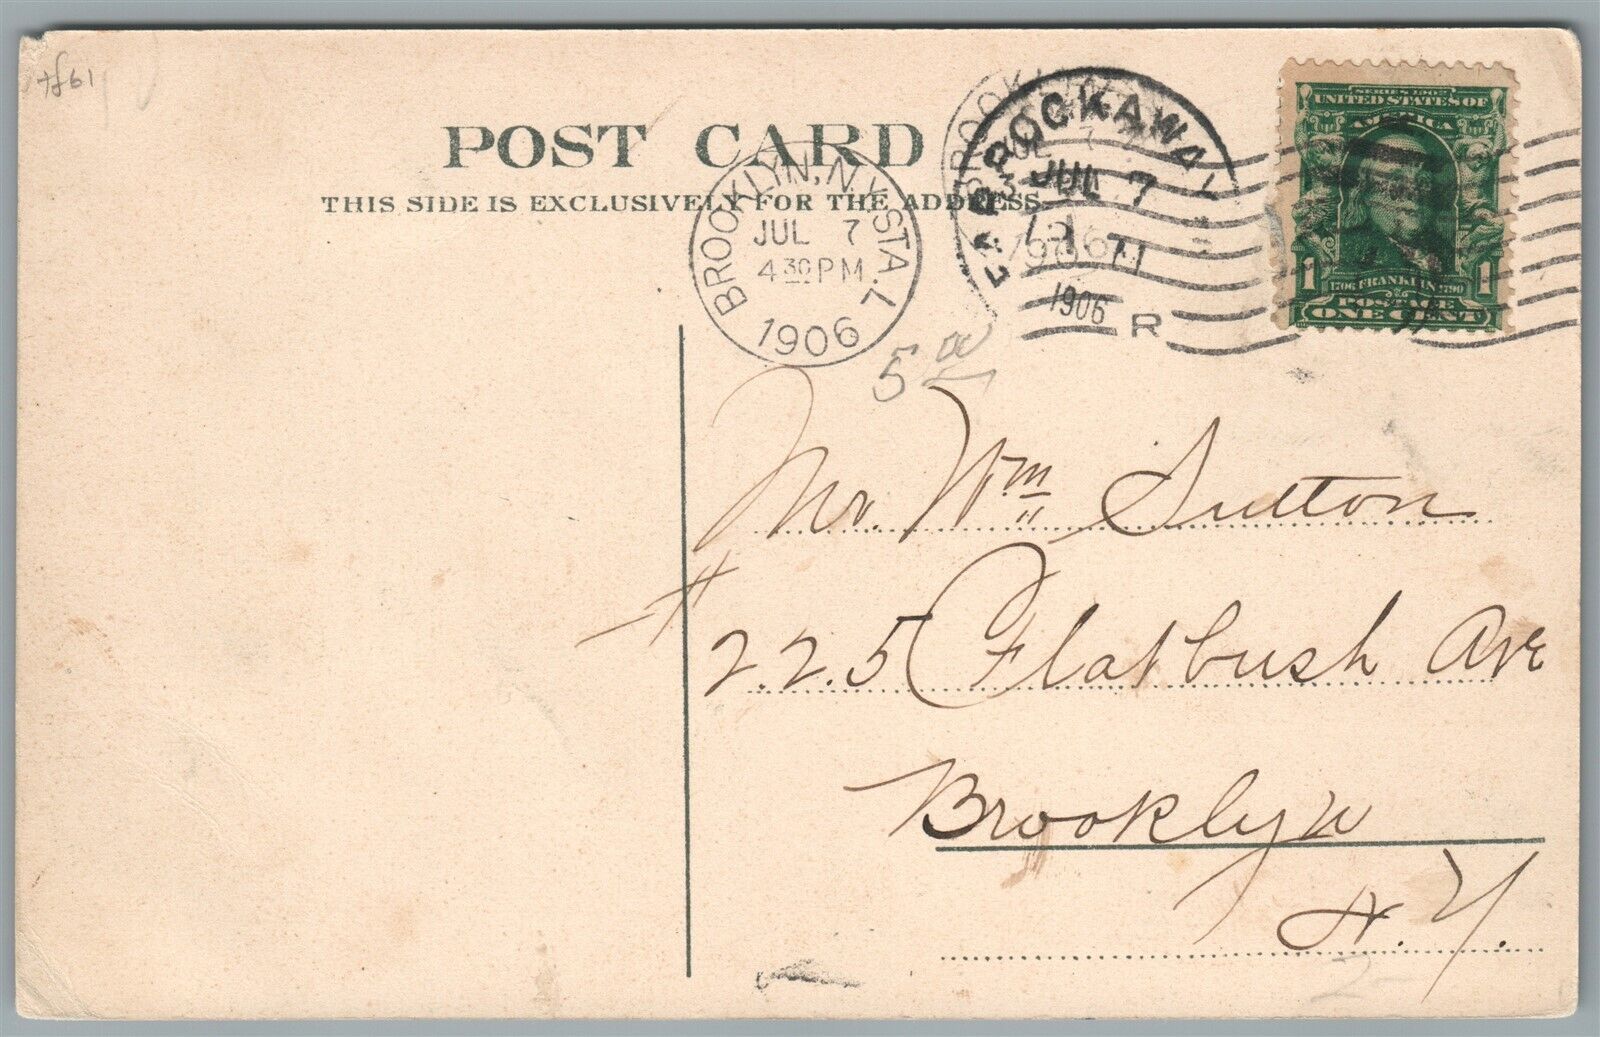 POST CARD
THIS SIDE IS EXCLUSIVELY FOR THE ADDRESS
BROOKLYN, N.Y. STA. L
JUL 7
4 30 PM
1906
FAR ROCKAWAY
JUL 7
1906
R
SERIES 1902
UNITED STATES OF
AMERICA
1 1
1706 FRANKLIN 1790
POSTAGE
ONE CENT
5 00
Mr. Wm Sutton
# 225 Flatbush Ave
Brooklyn
N.Y.